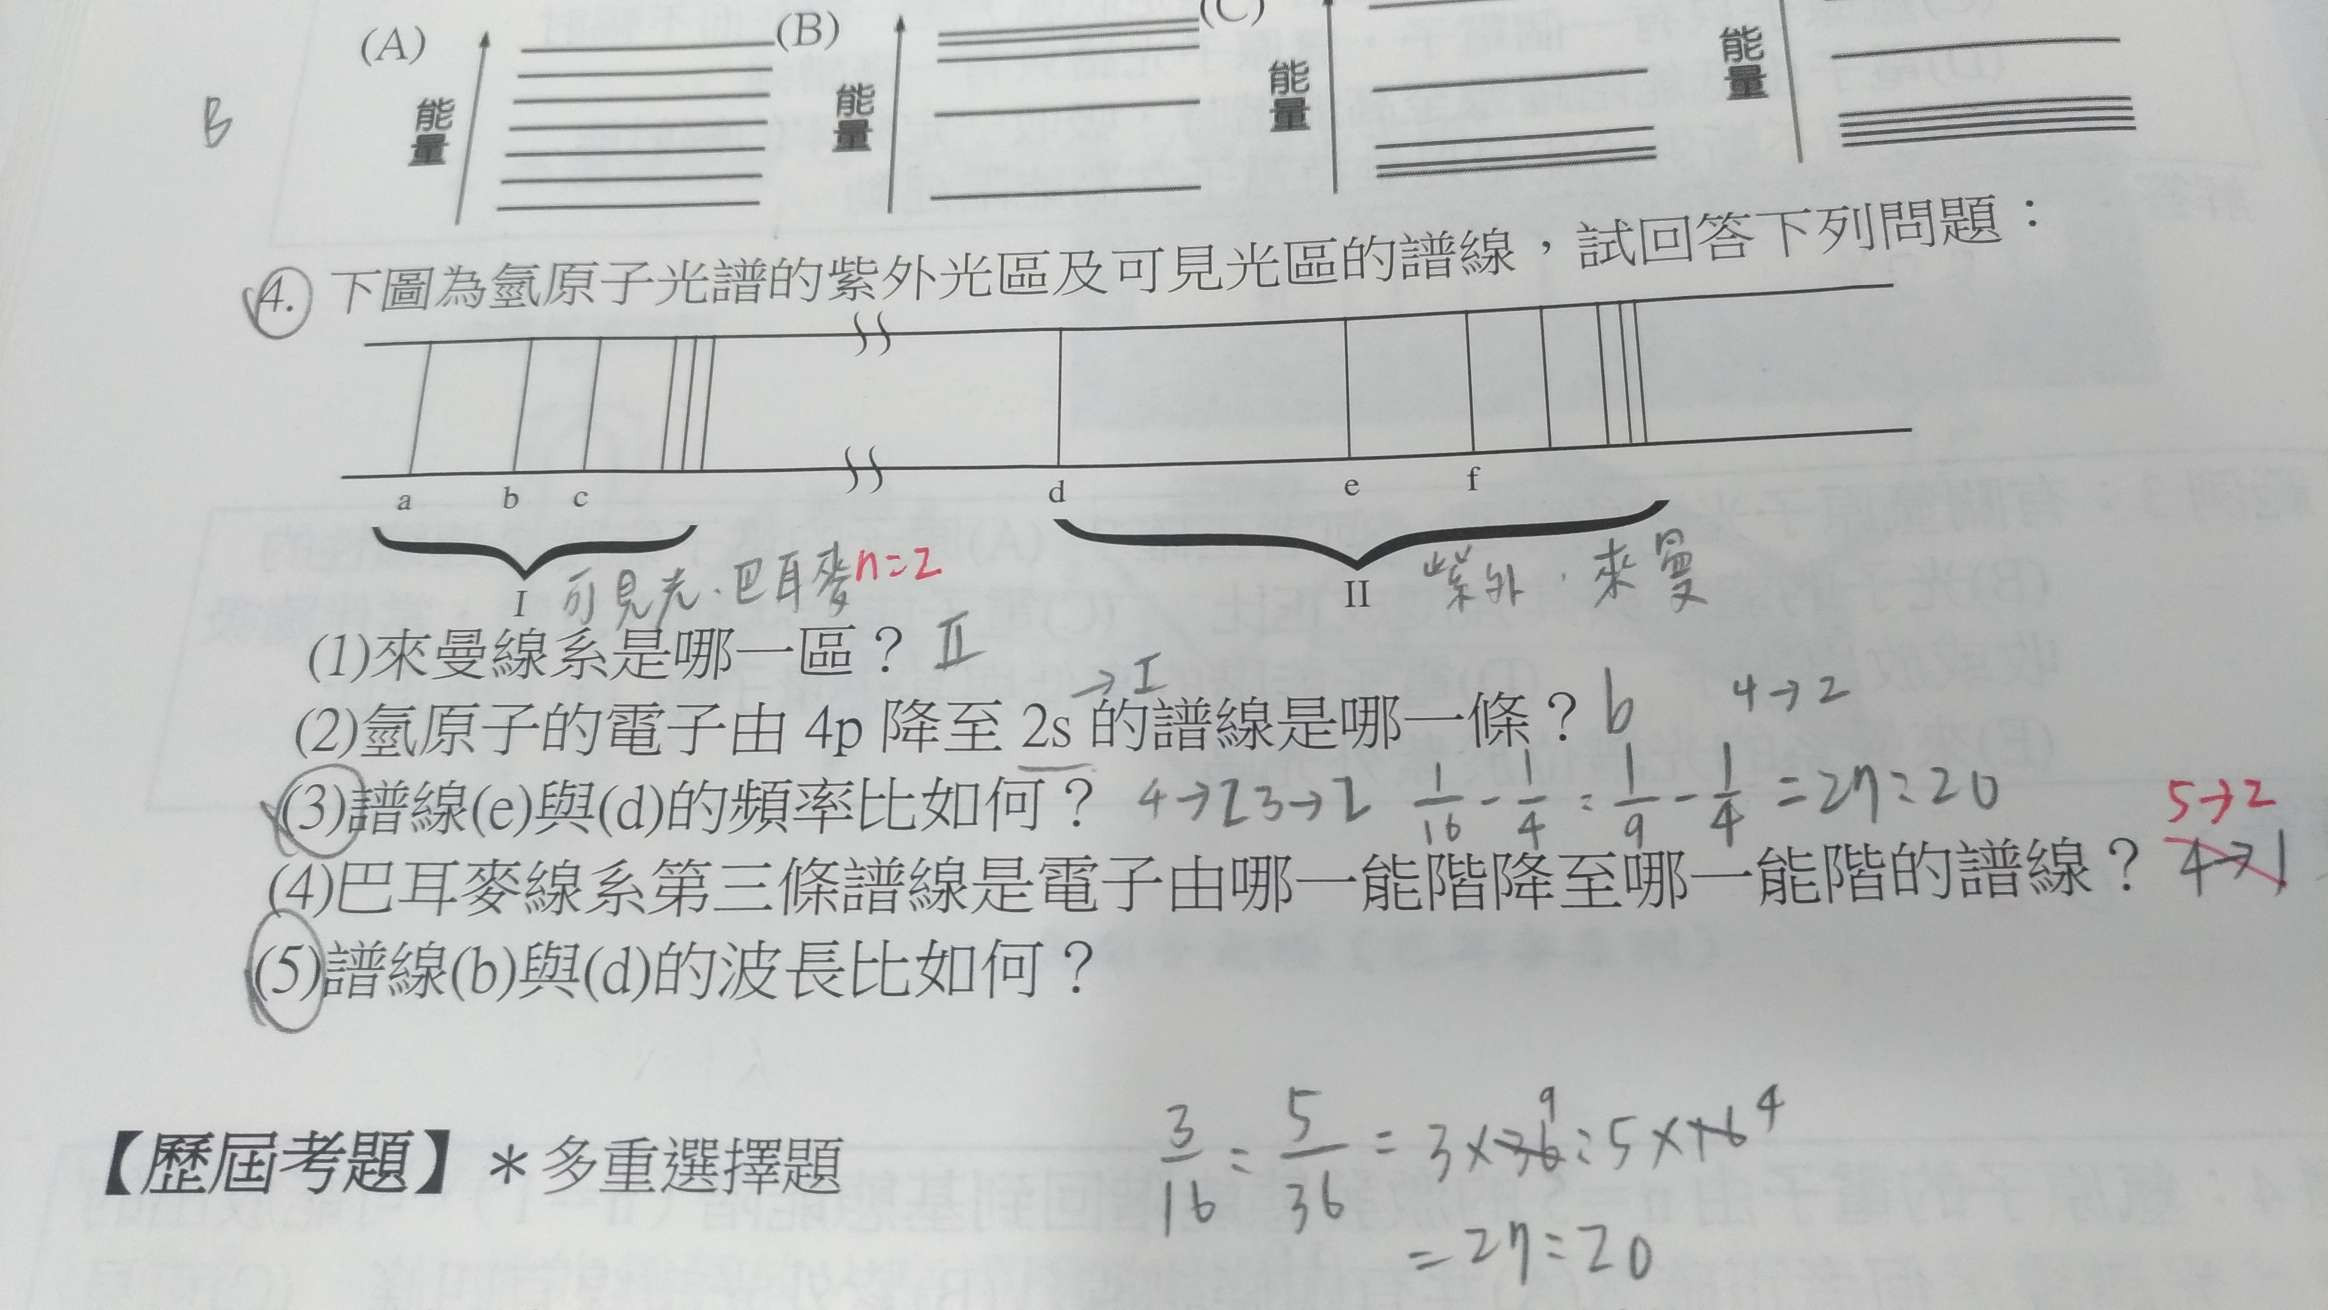 (A) (B) (C)
能量 能量 能量 能量
B
4. 下圖為氫原子光譜的紫外光區及可見光區的譜線，試回答下列問題：
a b c d e f
I 可見光．巴耳麥 n=2 II 紫外．來曼
(1)來曼線系是哪一區？ II
→I
(2)氫原子的電子由 4p 降至 2s 的譜線是哪一條？ b 4→2
(3)譜線(e)與(d)的頻率比如何？ 4→2 3→2 1/16 - 1/4 : 1/9 - 1/4 = 27:20
5→2
(4)巴耳麥線系第三條譜線是電子由哪一能階降至哪一能階的譜線？ 4→1
(5)譜線(b)與(d)的波長比如何？
3/16 : 5/36 = 3×36 9 : 5×16 4
= 27:20
【歷屆考題】＊多重選擇題